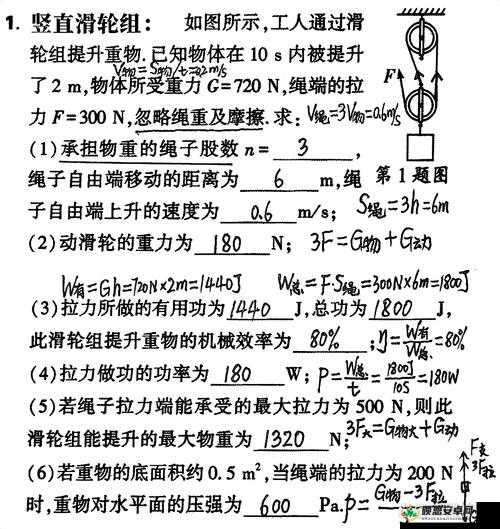 1. 竖直滑轮组： 如图所示,工人通过滑
轮组提升重物.已知物体在 10 s 内被提升
V物=S物/t=0.2m/s
了 2 m,物体所受重力 G=720 N,绳端的拉
力 F=300 N,忽略绳重及摩擦.求: V绳=3V物=0.6m/s
F
(1)承担物重的绳子股数 n= 3 ,
绳子自由端移动的距离为 6 m,绳 第 1 题图
子自由端上升的速度为 0.6 m/s; S绳=3h=6m
(2)动滑轮的重力为 180 N; 3F=G物+G动
W有=Gh=720N×2m=1440J W总=F·S绳=300N×6m=1800J
(3)拉力所做的有用功为 1440 J,总功为 1800 J,
此滑轮组提升重物的机械效率为 80% ; η=W有/W总=80%
(4)拉力做功的功率为 180 W; P=W总/t=1800J/10S=180W
(5)若绳子拉力端能承受的最大拉力为 500 N,则此
滑轮组能提升的最大物重为 1320 N; 3F大=G物大+G动
F支
3F拉
(6)若重物的底面积约 0.5 m²,当绳端的拉力为 200 N
时,重物对水平面的压强为 600 Pa. P=G物-3F拉